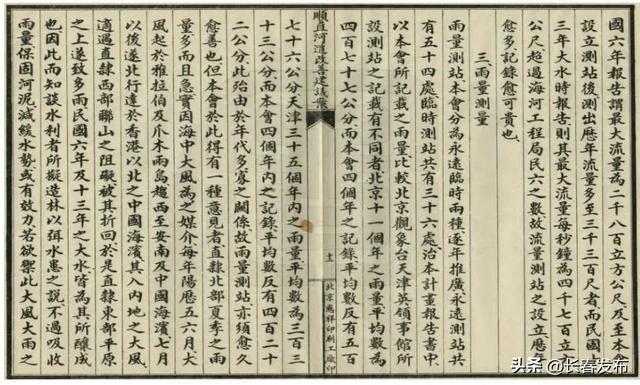 國六年報告謂最大流量為二千八百立方公尺及至本會
設立測站後測出歷年流量多至三千三百尺者而民國十
三年大水時報告則其最大流量每秒鐘為四千七百立方
公尺超過海河工程局民六之數故流量測站之設立歷年
愈多記錄愈可貴也
三雨量測量
雨量測站本會分為永遠臨時兩種逐年推廣永遠測站共
有五十四處臨時測站共有三十六處治本計畫報告書中
以本會所記載之雨量比較北京觀象台天津英領事館所
設測站之記載有不同者北京十一個年之雨量平均數為
四百七十七公分而本會四個年之記錄平均數反有五百
順直河道改善建議案
北京慈祥印刷工廠印
七十六公分天津三十五個年內之雨量平均數為三百三
十三公分而本會四個年內之記錄平均數反有四百二十
二公分此殆由於年代多寡之關係故雨量測站亦須愈久
愈善也但本會於此得有一種意見者直隸北部夏季之雨
量多而且急實因海中大風為之媒介每年陽歷五六月大
風起於雅拉伯及爪木雨島趨西至安南及中國海濱七月
以後遂北行達於香港以北之中國海濱其入內地之大風
適遇直隸西部聯山之阻礙被其折回於是直隸東部平原
之上遂致多雨民國六年及十三年之大水皆為其所釀成
也因此而知談水利者所擬造林以弭水患之說不過吸收
雨量保固河泥減緩水勢或有效力若欲禦此大風大雨之
头条 @长春发布